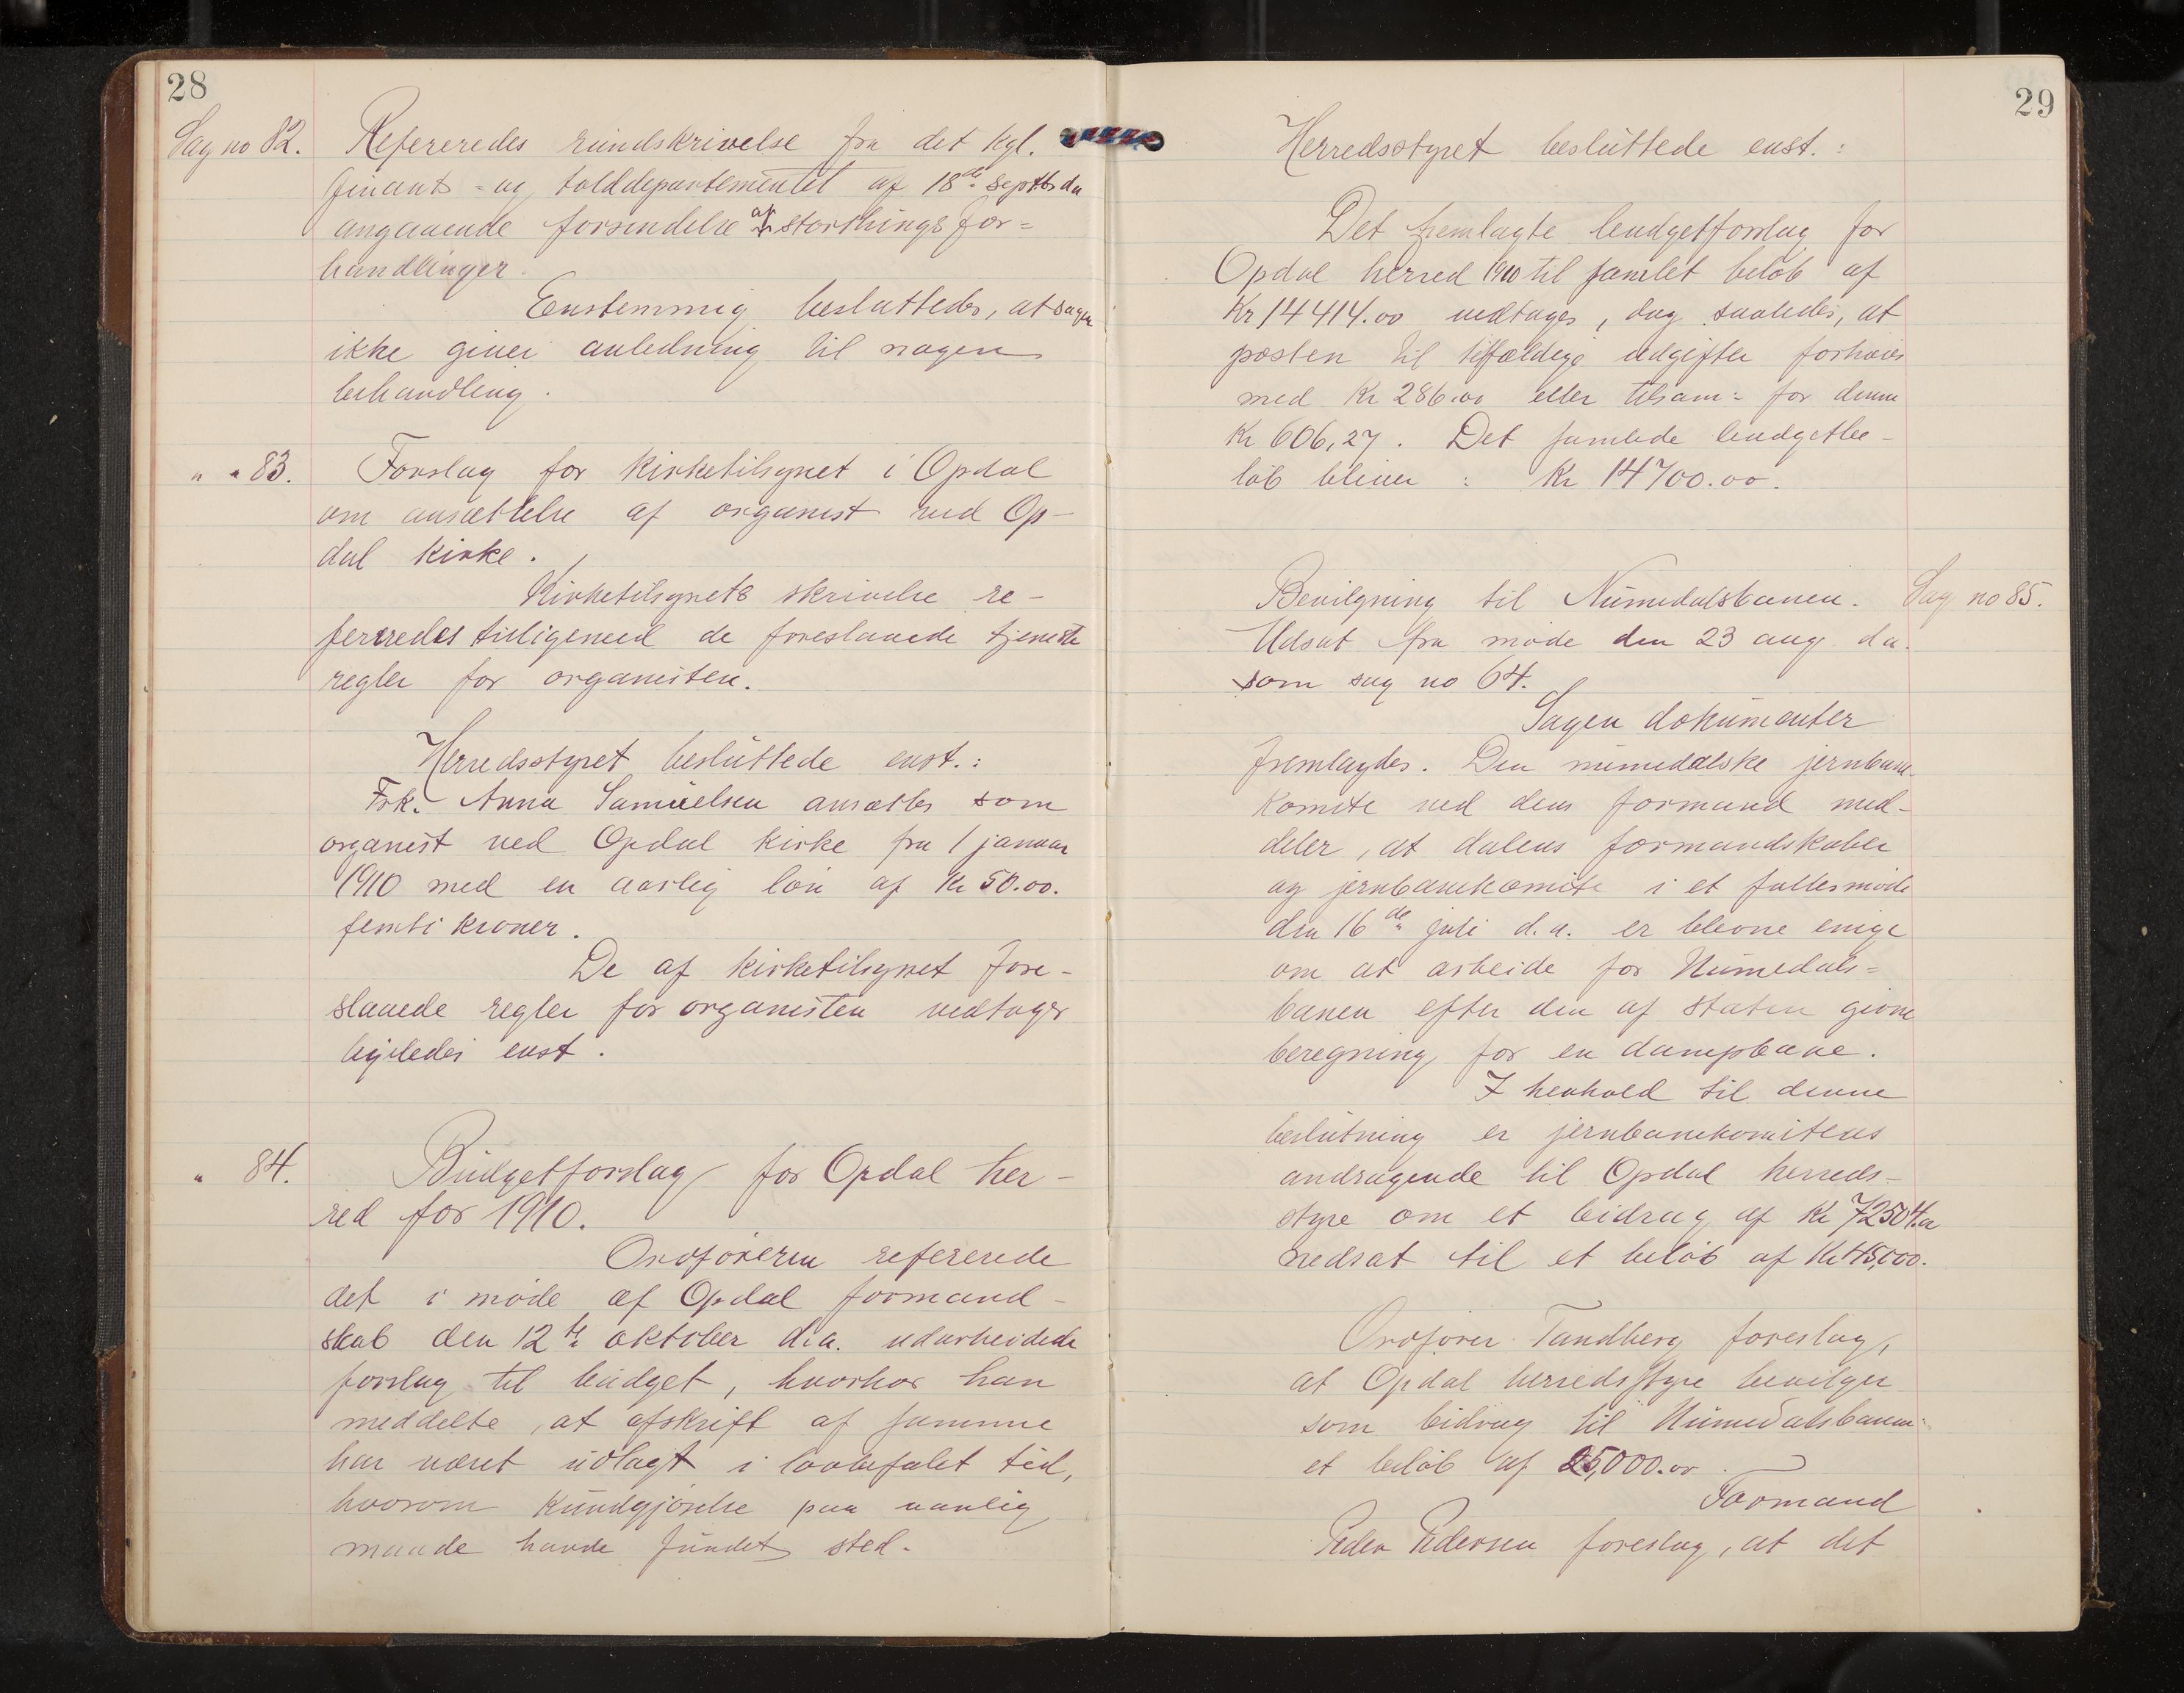 28
Sag no 82. Refereredes rundskrivelse fra det kgl.
finants- og tolddepartementet af 18de septbr da
angaaende forsendelse af storthingsfor=
handlinger.
Eenstemmig besluttedes, at sagen
ikke giver anledning til nogen
behandling.
" " 83. Forslag for kirketilsynet i Opdal
om ansættelse af organist ved Op-
dal kirke.
Kirketilsynets skrivelse re-
fereredes tilligemed de foreslaaede tjeneste
regler for organisten.
Herredsstyret besluttede enst.:
Frk. Anna Samuelsen ansættes som
organist ved Opdal kirke fra 1 januar
1910 med en aarlig løn af Kr 50.00.
femti kroner.
De af kirketilsynet fore-
slaaede regler for organisten vedtoges
ligeledes enst.
" 84. Budgetforslag for Opdal her-
red for 1910.
Ordføreren refererede
det i møde af Opdal formand-
skab den 12te oktober d.a. udarbeidede
forslag til budget, hvorhos han
meddelte, at afskrift af samme
har været udlagt i lovbefalet tid,
hvorom kundgjørelse paa vanlig
maade havde fundet sted.
29
Herredsstyret besluttede enst.:
Det fremlagte budgetforslag for
Opdal herred 1910 til samlet beløb af
Kr 14414.00 vedtages, dog saaledes, at
posten til tilfældige udgifter forhøies
med Kr 286.00 eller tilsam= for denne
Kr 606,27. Det samlede budgetbe-
løb bliver : Kr 14700.00.
Bevilgning til Numedalsbanen. Sag no 85.
Udsat fra møde den 23 aug da.
som sag no 64.
Sagen dokumenter
fremlagdes. Den numedalske jernbane-
komite ved dens formand med-
deler, at dalens formandskaber
og jernbanekomite i et fællesmøde
den 16de juli d.a. er blevne enige
om at arbeide for Numedals=
banen efter den af staten givne
beregning for en dampbane.
I henhold til denne
beslutning er jernbanekomiteens
andragende til Opdal herreds-
styre om et bidrag af Kr 72504.00
nedsat til et beløb af Kr 45,000.
Ordfører Tandberg foreslag,
at Opdal herredsstyre bevilger
som bidrag til Numedalsbanen:
et beløb af 25,000.00
Formand
Peder Pedersen foreslag, at det